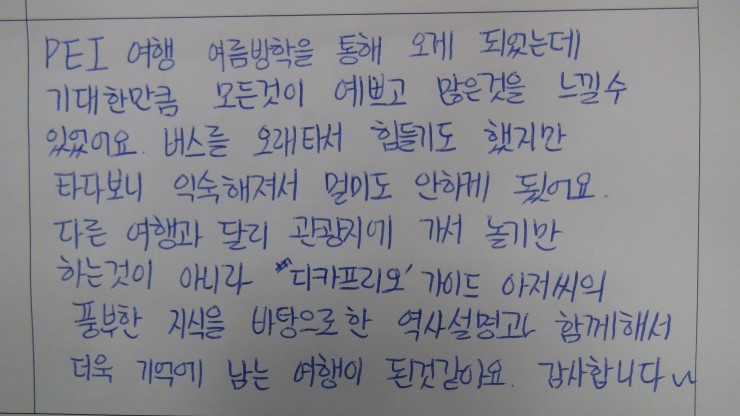 PEI 여행 여름방학을 통해 오게 되었는데
기대한만큼 모든것이 예쁘고 많은것을 느낄수
있었어요. 버스를 오래타서 힘들기도 했지만
타다보니 익숙해져서 멀미도 안하게 됬어요.
다른 여행과 달리 관광지에 가서 놀기만
하는것이 아니라 "디카프리오' 가이드 아저씨의
풍부한 지식을 바탕으로한 역사설명과 함께해서
더욱 기억에 남는 여행이 된것같아요. 감사합니다~